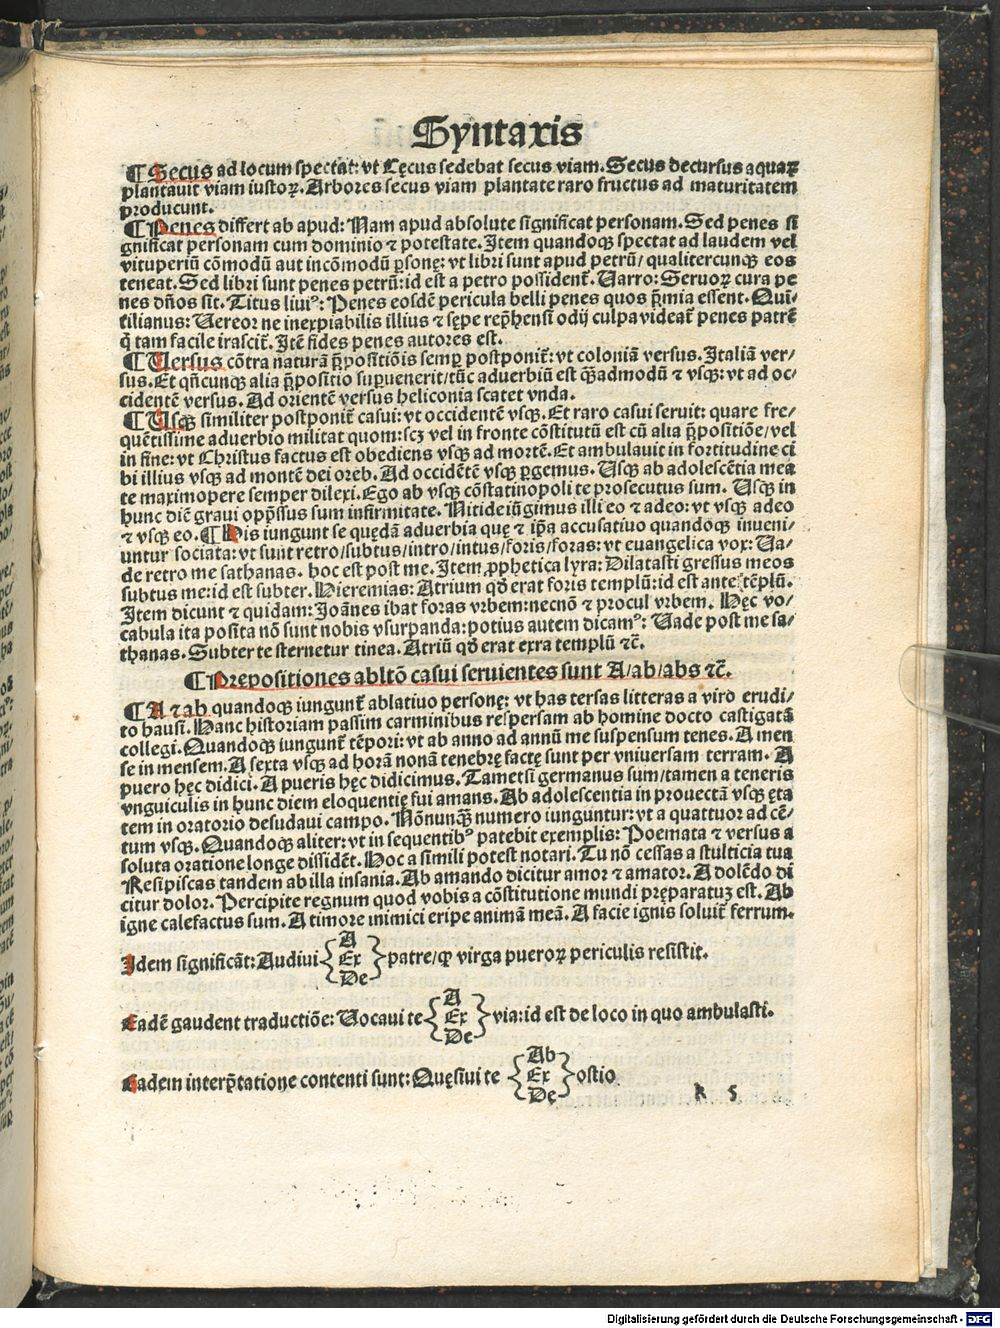 Syntaxis
¶ Secus ad locum spectat: vt Cęcus sedebat secus viam. Secus decursus aquaꝝ
plantauit viam iustoꝝ. Arbores secus viam plantate raro fructus ad maturitatem
producunt.
¶ Penes differt ab apud: Nam apud absolute significat personam. Sed penes si
gnificat personam cum dominio ⁊ potestate. Item quandoqꝫ spectat ad laudem vel
vituperiū cōmodū aut incōmodū ꝑsonę: vt libri sunt apud petrū/ qualitercunqꝫ eos
teneat. Sed libri sunt penes petrū: id est a petro possident᷑. Uarro: Seruoꝝ cura pe
nes dn̄os sit. Titus liuiꝰ: Penes eosdē pericula belli penes quos p̄mia essent. Qui
tilianus: Uereor ne inexpiabilis illius ⁊ sępe rep̄hensi odij culpa videat᷑ penes patrē
q̇ tam facile irascit᷑. Itē fides penes autores est.
¶ Uersus cōtra naturā p̄positiōis semꝑ postponit᷑: vt coloniā versus. Italiā ver/
sus. Et qn̄cunqꝫ alia p̄positio suꝑuenerit/ tūc aduerbiū est q̄admodū ⁊ vsqꝫ: vt ad oc/
cidentē versus. Ad orientē versus heliconia scatet vnda.
¶ Usqꝫ similiter postponit᷑ casui: vt occidentē vsqꝫ. Et raro casui seruit: quare fre/
quētissime aduerbio militat quom: scꝫ vel in fronte cōstitutū est cū alia p̄positiōe/ vel
in fine: vt Christus factus est obediens vsqꝫ ad mortē. Et ambulauit in fortitudine ci
bi illius vsqꝫ ad montē dei oreb. Ad occidētē vsqꝫ ꝑgemus. Usqꝫ ab adolescētia mea
te maximopere semper dilexi. Ego ab vsqꝫ cōstatinopoli te prosecutus sum. Usqꝫ in
hunc diē graui opp̄ssus sum infirmitate. Nitide iūgimus illi eo ⁊ adeo: vt vsqꝫ adeo
⁊ vsqꝫ eo. ¶ His iungunt se quędā aduerbia quę ⁊ ip̄a accusatiuo quandoqꝫ inueni/
untur sociata: vt sunt retro/ subtus/ intro/ intus/ foris/ foras: vt euangelica vox: Ua/
de retro me sathanas. hoc est post me. Item ꝓphetica lyra: Dilatasti gressus meos
subtus me: id est subter. Hieremias: Atrium qd̄ erat foris templū: id est ante tēplū.
Item dicunt ⁊ quidam: Joānes ibat foras vrbem: necnō ⁊ procul vrbem. Hęc vo/
cabula ita posita nō sunt nobis vsurpanda: potius autem dicamꝰ: Uade post me sa/
thanas. Subter te sternetur tinea. Atriū qd̄ erat extra templū ⁊c̄.
¶ Prepositiones abltō casui seruientes sunt A/ ab/ abs ⁊c̄.
¶ A ⁊ ab quandoqꝫ iungunt᷑ ablatiuo personę: vt has tersas litteras a viro erudi/
to hausi. Hanc historiam passim carminibus respersam ab homine docto castigatā
collegi. Quandoqꝫ iungunt᷑ tēpori: vt ab anno ad annū me suspensum tenes. A men
se in mensem. A sexta vsqꝫ ad horā nonā tenebrę factę sunt per vniuersam terram. A
puero hęc didici. A pueris hęc didicimus. Tametsi germanus sum/ tamen a teneris
vnguiculis in hunc diem eloquentię fui amans. Ab adolescentia in prouectā vsqꝫ ęta
tem in oratorio desudaui campo. Nōnunqꝫ̄ numero iunguntur: vt a quattuor ad cē/
tum vsqꝫ. Quandoqꝫ aliter: vt in sequentibꝰ patebit exemplis: Poemata ⁊ versus a
soluta oratione longe dissidēt. Hoc a simili potest notari. Tu nō cessas a stulticia tua
Resipiscas tandem ab illa insania. Ab amando dicitur amor ⁊ amator. A dolēdo di
citur dolor. Percipite regnum quod vobis a cōstitutione mundi pręparatuꝫ est. Ab
igne calefactus sum. A timore inimici eripe animā meā. A facie ignis soluit᷑ ferrum.
A
Idem significāt: Audiui { Ex } patre/ ꝙ virga pueroꝝ periculis resistit.
De
A
Eadē gaudent traductiōe: Uocaui te { Ex } via: id est de loco in quo ambulasti.
De
Ab
Eadem interp̄tatione contenti sunt: Quęsiui te { Ex } ostio
De
R 5
Digitalisierung gefördert durch die Deutsche Forschungsgemeinschaft - DFG